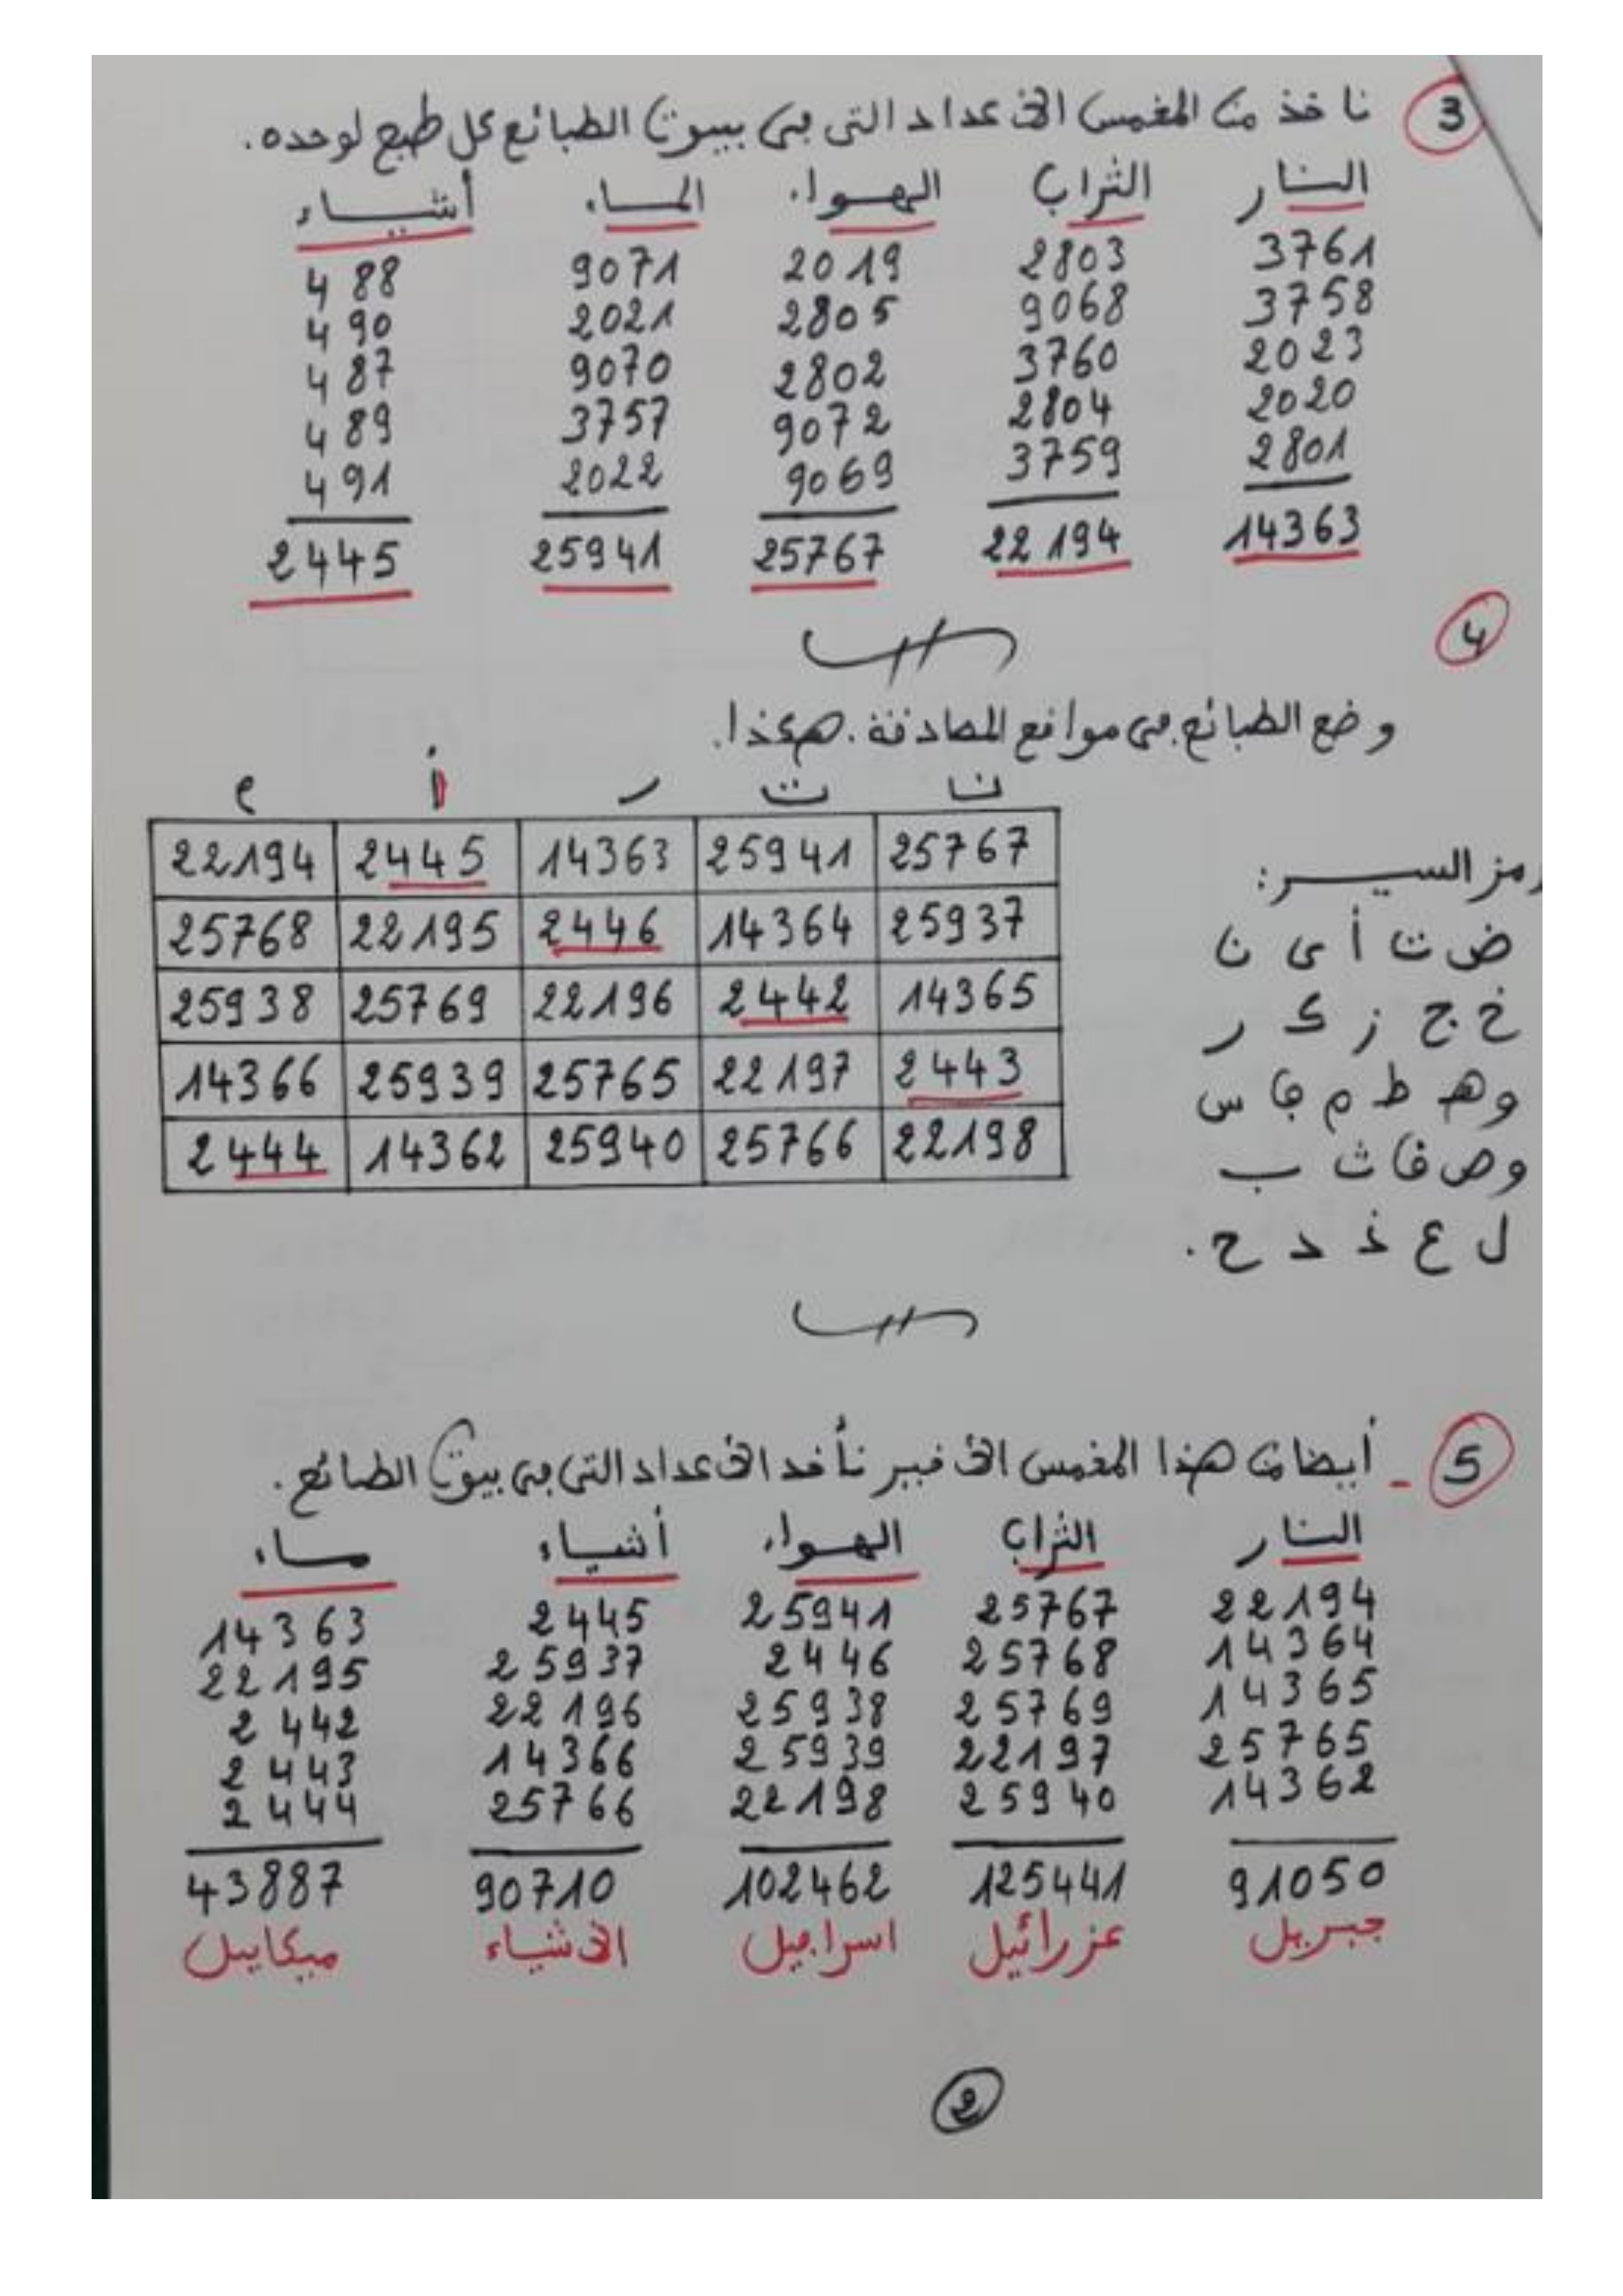 3 ناخذ من المخمس الاعداد التي في بيوت الطبائع كل طبع لوحده.
النار التراب الهواء الماء أشياء
3761 2803 2019 9071 488
3758 9068 2805 2021 490
2023 3760 2802 9070 487
2020 2804 9072 3757 489
2801 3759 9069 2022 491
14363 22194 25767 25941 2445
4
وضع الطبائع في مواقع المصادفة. هكذا.
25767 25941 14363 2445 22194
25937 14364 2446 22195 25768
14365 2442 22196 25769 25938
2443 22197 25765 25939 14366
22198 25766 25940 14362 2444
رمز السير:
ض ت أ ى ن
خ ج ز ك ر
و هـ ط م ق س
و ص ف ث ب
ل ع خ د ح.
5 - أيضا من هذا المخمس الاخير نأخد الاعداد التي في بيوت الطبائع.
النار التراب الهواء أشياء ماء
22194 25767 25941 2445 14363
14364 25768 2446 25937 22195
14365 25769 25938 22196 2442
25765 22197 25939 14366 2443
14362 25940 22198 25766 2444
91050 125441 102462 90710 43887
جبريل عزرائيل اسرافيل الاشياء ميكاييل
2